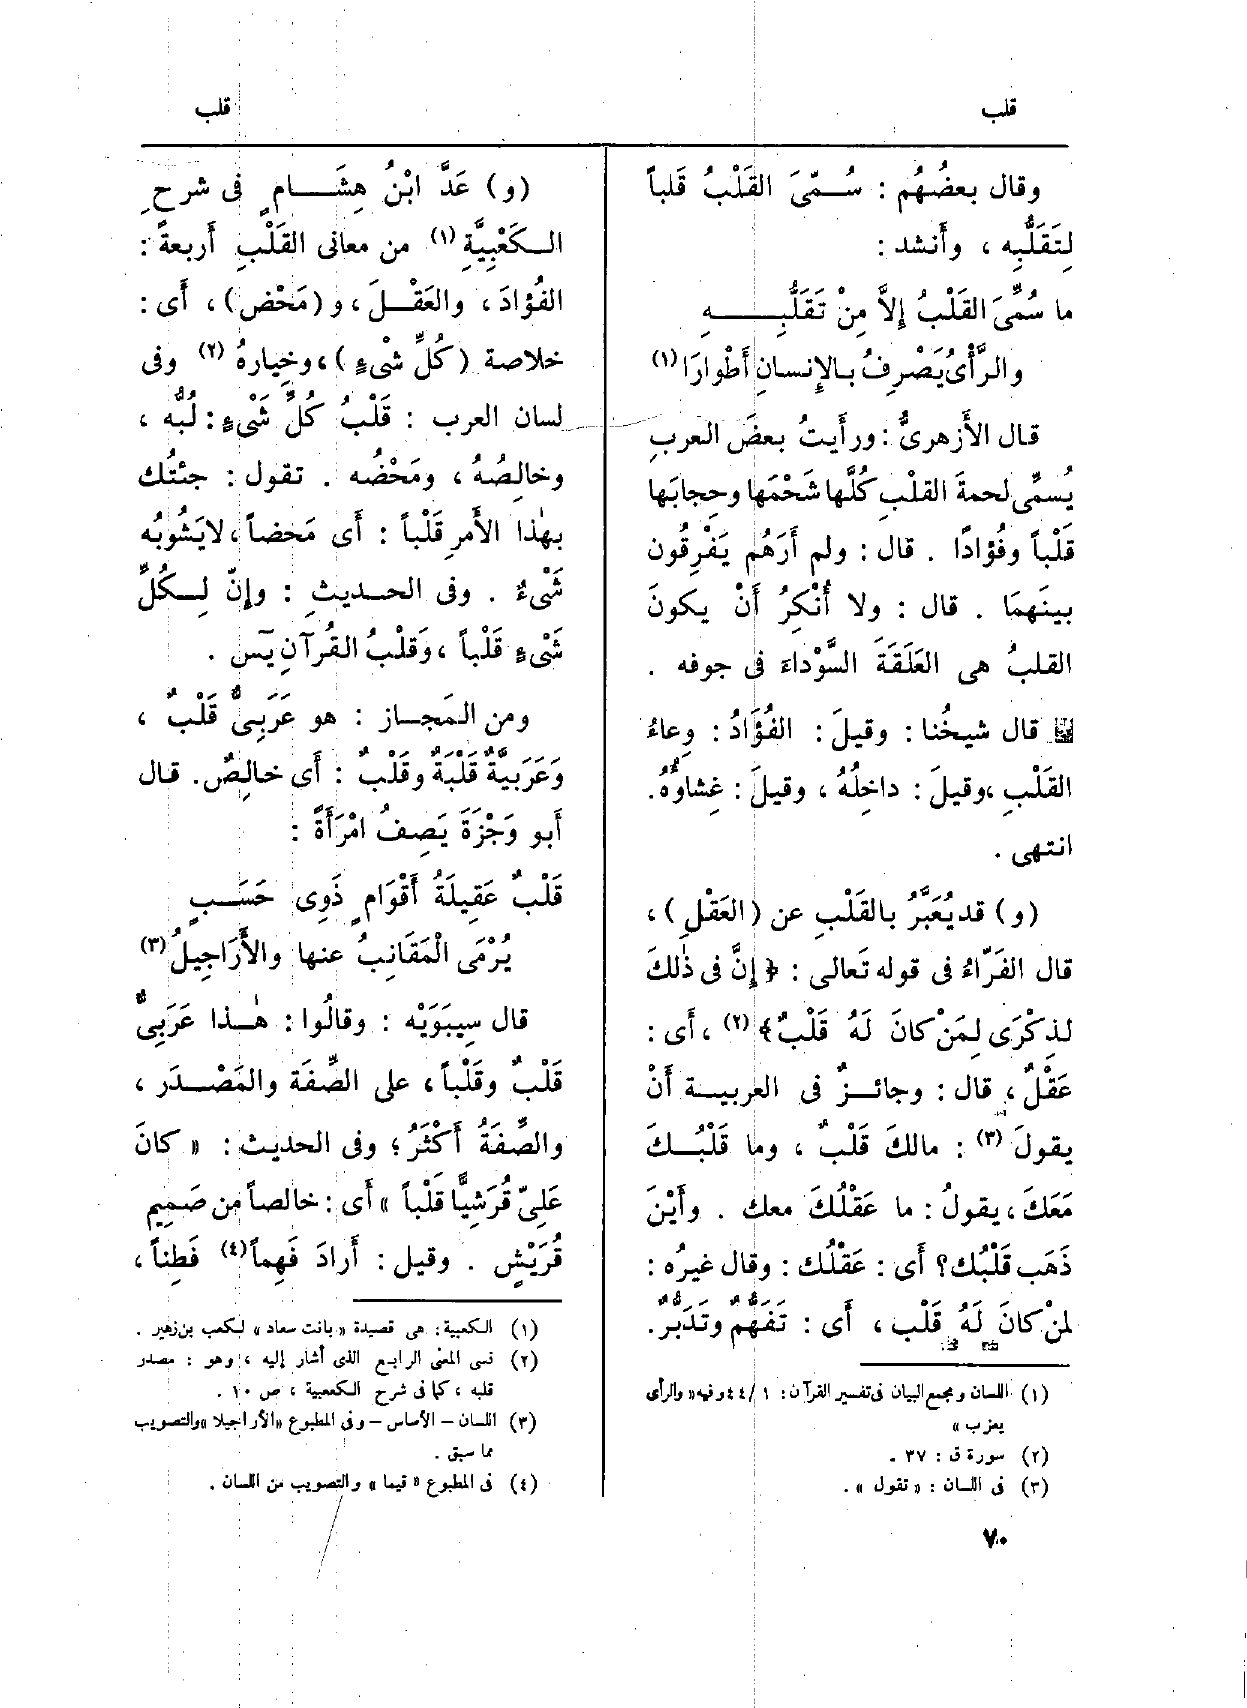 قلب
قلب
وقال بعضُهُم : سُـمِّىَ القَلْبُ قَلباً
لِتَقَلُّبِه ، وأَنشد :
ما سُمِّىَ القَلْبُ إِلاَّ مِنْ تَقَلُّبِـــــــهِ
والرَّأْىُ يَصْرِفُ بـالإِنسانِ أَطْوارَا (١)
قال الأَزهرىُّ : ورأَيتُ بعضَ العربِ
يُسمِّى لحمةَ القلْبِ كلَّها شَحْمَها وحِجابَها
قَلْباً وفُؤادًا . قال : ولم أَرَهُم يَفْرِقُون
بينَهمَا . قال : ولا أُنْكِرُ أَنْ يكونَ
القلبُ هى العَلَقَةَ السَّوْداءَ فى جوفه .
قال شيخُنا : وقيلَ : الفُؤَادُ : وِعاءُ
القَلْبِ ،وقيلَ : داخِلُهُ ، وقيلَ : غِشاؤُهُ.
انتهى .
(و) قد يُعَبَّرُ بالقَلْبِ عن (العَقْلِ) ،
قال الفَرّاءُ فى قوله تَعالى : ﴿ إِنَّ فى ذٰلكَ
لَذِكْرَى لِمَنْ كانَ لَهُ قَلْبٌ﴾ (٢) ، أَى :
عَقْلٌ ، قال : وجائـزٌ فى العربيـة أَنْ
يقولَ (٣) : مالكَ قَلْبٌ ، وما قَلْبُـكَ
مَعَكَ ، يقولُ : ما عَقْلُكَ معك . وأَيْنَ
ذَهَب قَلْبُك؟ أَى : عَقْلُك : وقال غيرُه :
لمنْ كانَ لَهُ قَلْب ، أَى : تَفَهُّمٌ وتَدَبُّرٌ.
(١) اللسان ومجمع البيان فى تفسير القرآن : ١ /٤٤ وفيه « والرأى
يعزب »
(٢) سورة ق : ٣٧ .
(٣) فى اللسان : « تقول » .
(و) عَدَّ ابْنُ هِشَـــامٍ فى شرحِ
الـكَعْبِيَّةِ (١) من معانى القَلْبِ أَربعةً :
الفُؤادَ ، والعَقْـلَ ، و(مَحْض) ، أَى :
خلاصة (كُلِّ شْىءٍ) ،وخيارهُ (٢) وفى
لسان العرب : قَلْبُ كُلِّ شْىءٍ : لُبُّه ،
وخالِصُهُ ، ومَحْضُه . تقول : جئتُك
بهٰذا الأَمرِ قَلْباً : أَى مَحضاً ،لايَشُوبُه
شْىءٌ . وفى الحـديثِ : وإِنّ لِـكُلِّ
شَىْءٍ قَلْباً ،وَقلْبُ القُرآنِ يَس .
ومن المَجـاز : هو عَرَبِىٌّ قَلْبٌ ،
وَعَرَبيَّةٌ قَلْبَةٌ وقَلْبٌ : أَى خالِصٌ. قال
أَبو وَجْزَةَ يَصِفُ امْرَأَةً :
قَلْبٌ عَقِيلَةُ أَقْوَامٍ ذَوِى حَسَـبٍ
يُرْمَى الْمَقَانِبُ عنها والأَرَاجِيلُ (٣)
قال سِيبَوَيْه : وقالُوا : هٰـذا عَرَبِىٌّ
قَلْبٌ وقَلْباً ، على الصِّفَة والمَصْـدَر ،
والصِّفَةُ أَكثَرُ ؛ وفى الحديث : « كانَ
عَلِىّ قُرَشِيًّا قَلْباً » أَى : خالصاً مِن صَمِيمِ
قُرَيْشٍ . وقيل : أَرادَ فَهِماً (٤) فَطِناً ،
(١) الكعبية : هى قصيدة « بانت سعاد » لكعب بن زهير .
(٢) نسى المعنى الرابع الذى أشار إليه ، وهو : مصدر
قلبه ، كما فى شرح الكعبية ، ص ١٠ .
(٣) اللسان – الأساس – وفى المطبوع «الأراجيلا » والتصويب
مما سبق .
(٤) فى المطبوع « قيما » والتصويب من اللسان .
٧٠